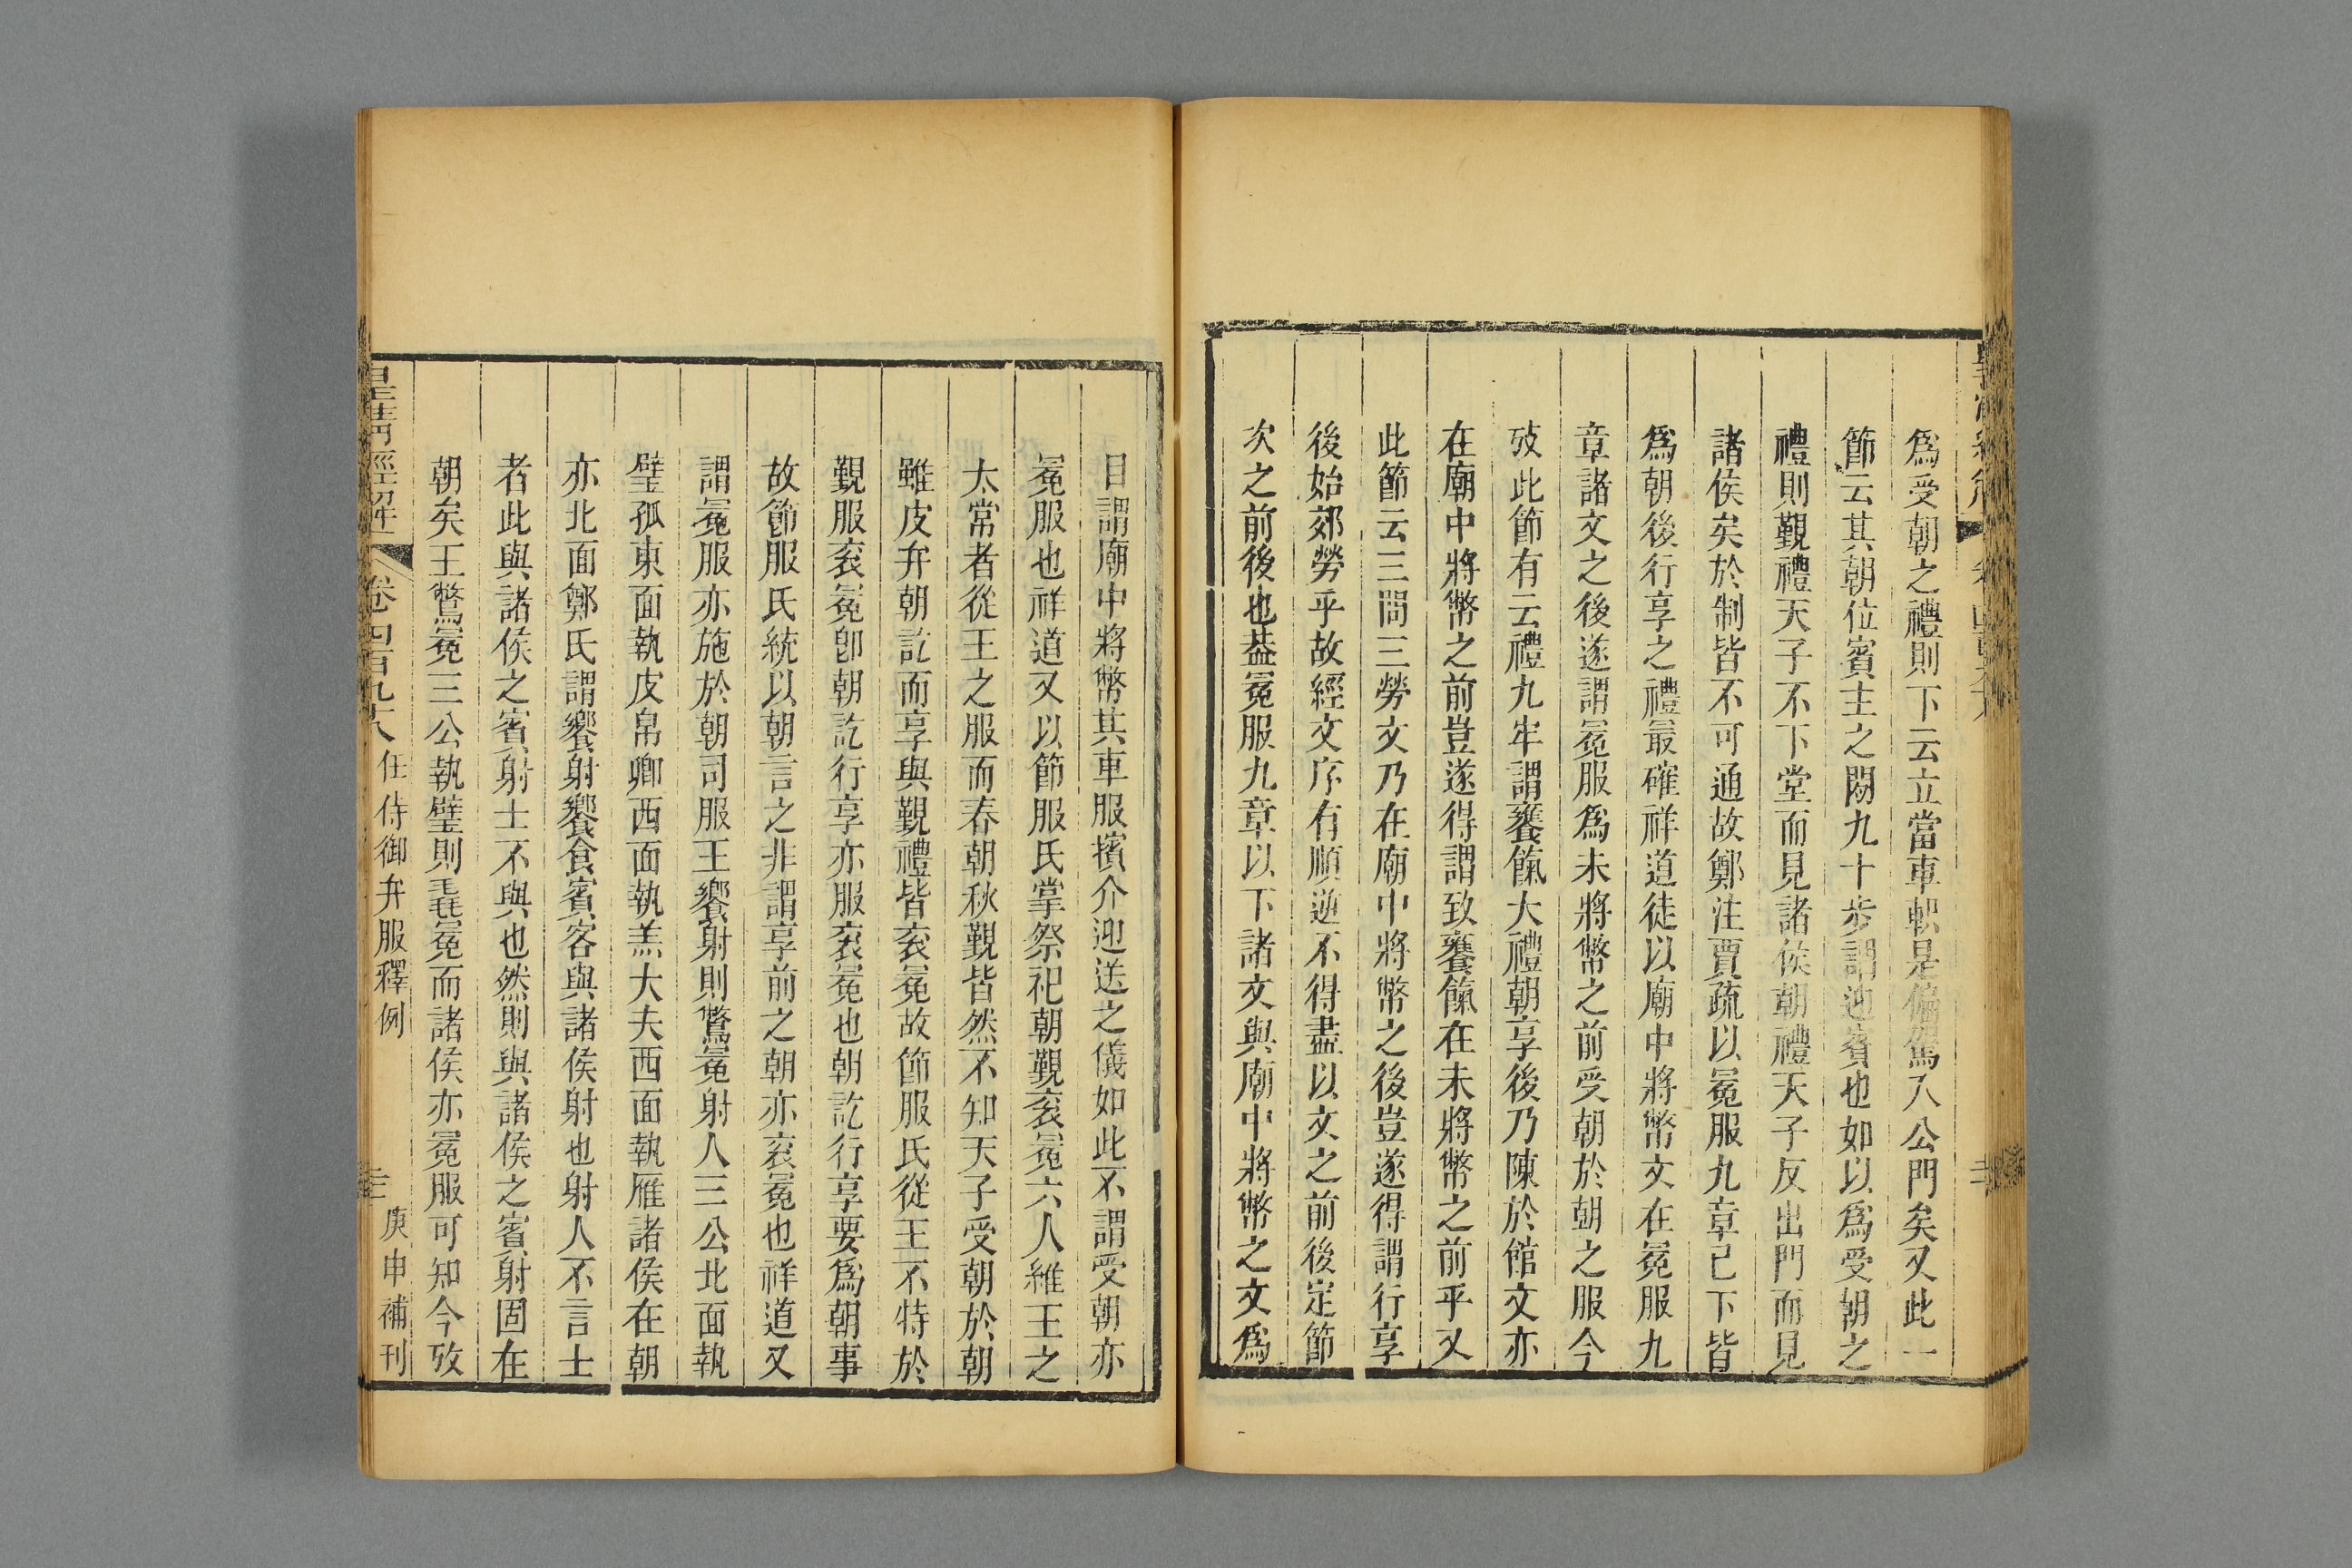 爲受朝之禮則下云立當車軹是偏駕入公門矣又此一
節云其朝位賓主之閒九十步謂迎賓也如以爲受朝之
禮則覲禮天子不下堂而見諸侯朝禮天子反出門而見
諸侯矣於制皆不可通故鄭注賈疏以冕服九章已下皆
爲朝後行享之禮最確祥道徒以廟中將幣文在冕服九
章諸文之後遂謂冕服爲未將幣之前受朝於朝之服今
攷此節有云禮九牢謂饔餼大禮朝享後乃陳於館文亦
在廟中將幣之前豈遂得謂致饔餼在未將幣之前乎又
此節云三問三勞文乃在廟中將幣之後豈遂得謂行享
後始郊勞乎故經文序有順逆不得盡以文之前後定節
次之前後也葢冕服九章以下諸文與廟中將幣之文爲
目謂廟中將幣其車服擯介迎送之儀如此不謂受朝亦
冕服也祥道又以節服氏掌祭祀朝覲衮冕六人維王之
太常者從王之服而春朝秋覲皆然不知天子受朝於朝
雖皮弁朝訖而享與覲禮皆衮冕故節服氏從王不特於
覲服衮冕卽朝訖行享亦服衮冕也朝訖行享要爲朝事
故節服氏統以朝言之非謂享前之朝亦衮冕也祥道又
謂冕服亦施於朝司服王饗射則鷩冕射人三公北面執
璧孤東面執皮帛卿西面執羔大夫西面執雁諸侯在朝
亦北面鄭氏謂饗射饗食賓客與諸侯射也射人不言士
者此與諸侯之賓射士不與也然則與諸侯之賓射固在
朝矣王鷩冕三公執璧則毳冕而諸侯亦冕服可知今攷
皇清經解 卷四百九十八 任侍御弁服釋例 庚申補刊